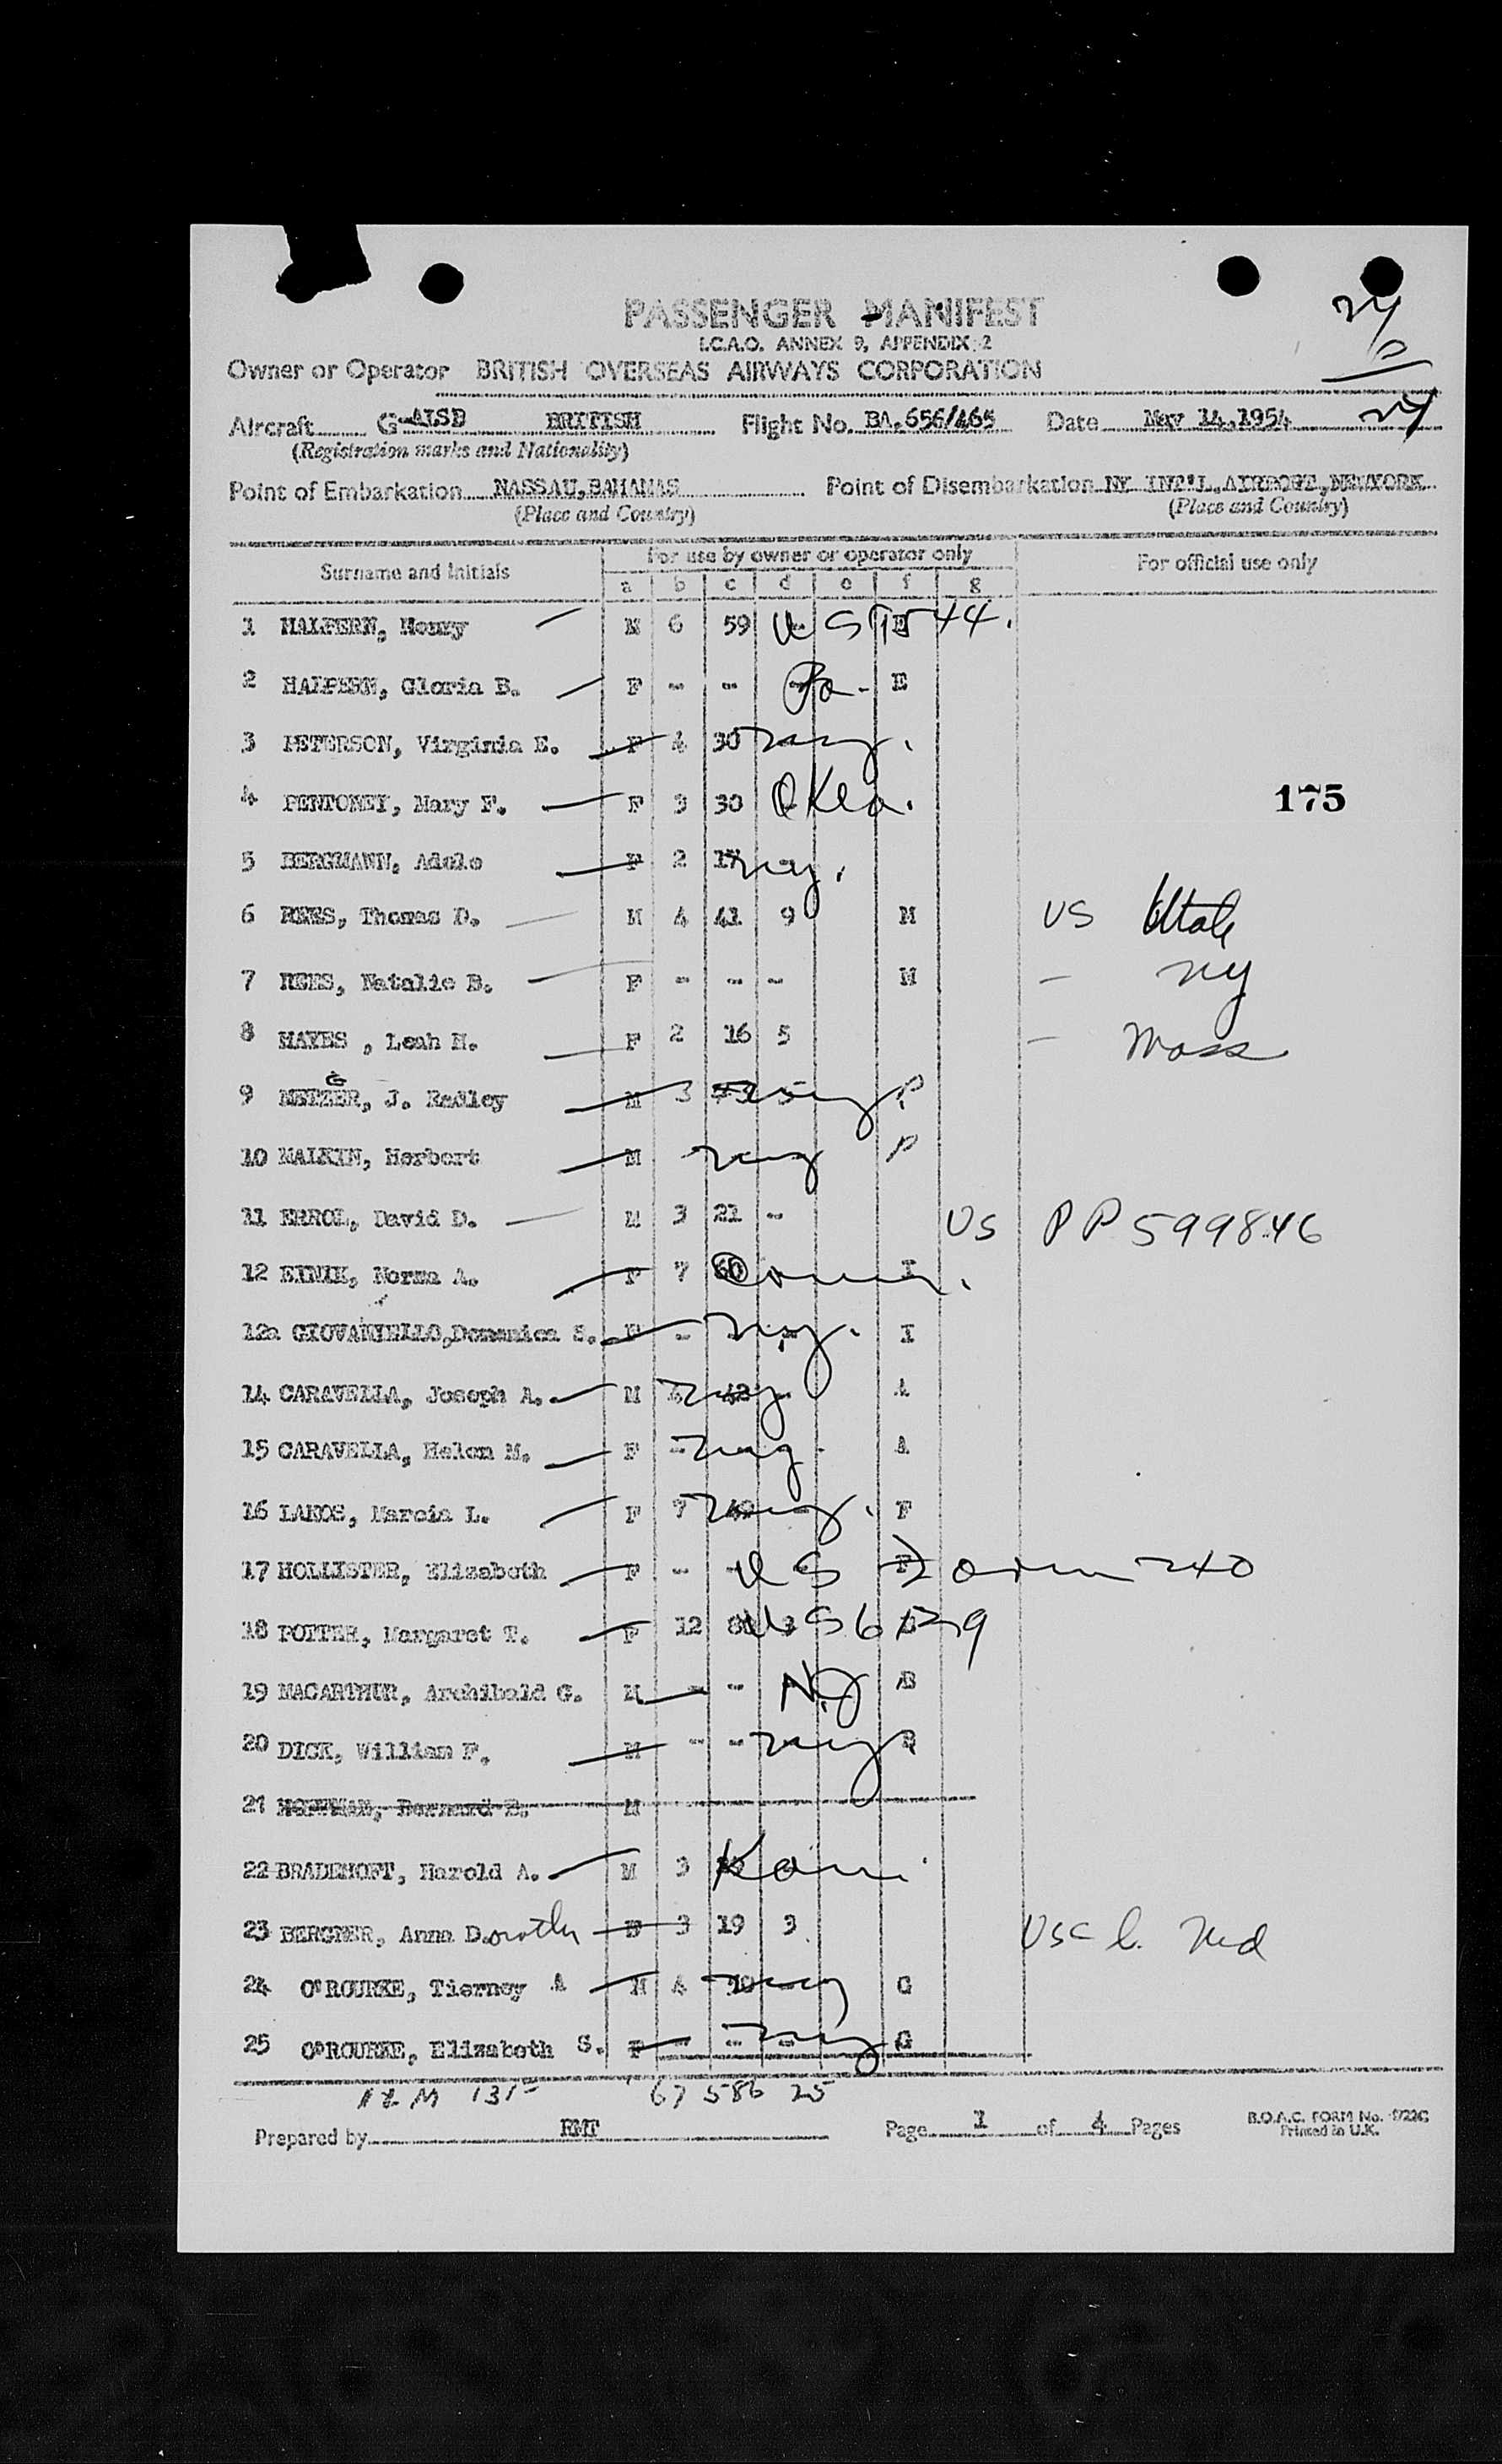 24
PASSENGER MANIFEST
I.C.A.O. ANNEX 9, APPENDIX 2
Owner or Operator BRITISH OVERSEAS AIRWAYS CORPORATION
24
Aircraft G-ALSB BRITISH Flight No. BA.656/465 Date May 14,1954
(Registration marks and Nationality)
Point of Embarkation NASSAU,BAHAMAS Point of Disembarkation NY INT'L.AIRPORT,NEWYORK
(Place and Country) (Place and Country)
Surname and Initials For use by owner or operator only For official use only
a b c d e f g
1 HALPERN, Henry M 6 59 US
2 HALPERN, Gloria B. F - - - Pa. E
3 PETERSON, Virginia E. F 4 30 ny.
4 PENTONEY, Mary F. F 3 30 Okla.
175
5 BERGMANN, Adele F 2 17 ny.
6 REES, Thomas D. M 4 41 9 M US Utah
7 REES, Natalie B. F - - - M - ny
8 HAYES , Leah H. F 2 16 5 - Mass
G
9 METZER, J. Radley M 3 ny P
10 MALKIN, Herbert M ny P
11 ERROL, David D. M 3 21 - US PP 599846
12 EINIK, Norma A. F 7 60 Conn. I
12a GIOVANIELLO,Domenica S. F - ny. I
14 CARAVELLA, Joseph A. M 42 ny A
15 CARAVELLA, Helen M. F - ny - A
16 LAKOS, Marcia L. F 7 ny. F
17 HOLLISTER, Elizabeth F - - US Form 240
18 POTTER, Margaret T. F 12 US
19 MACARTHUR, Archibald G. M - - NJ B
20 DICK, William F. M - - ny B
21 HOFFMAN, Bernard M
22 BRADEHOFT, Harold A. M 3 Kan.
23 BERGNER, Anna Dorothy F 3 19 3 USC b. Md
24 O'ROURKE, Tierney A M 4 ny G
25 O'ROURKE, Elizabeth S. F - - - ny G
12 M 131- 67 586 25
Prepared by RMT Page 1 of 4 Pages
B.O.A.C. FORM No. 1722C
Printed in U.K.